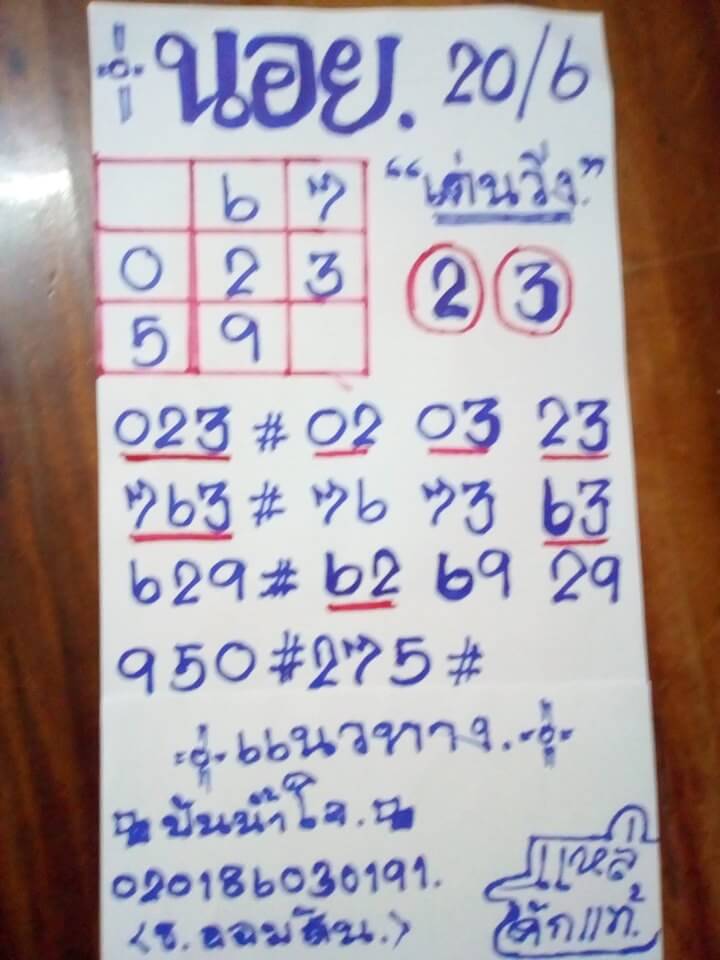 นอย. 20/6
"เด่นวิ่ง."
6 7
0 2 3
5 9
2 3
023 # 02 03 23
763 # 76 73 63
629 # 62 69 29
950 # 275 #
แนวทาง.
ปันน้ำใจ.
020186030191.
(ธ.ออมสิน.)
แท้.